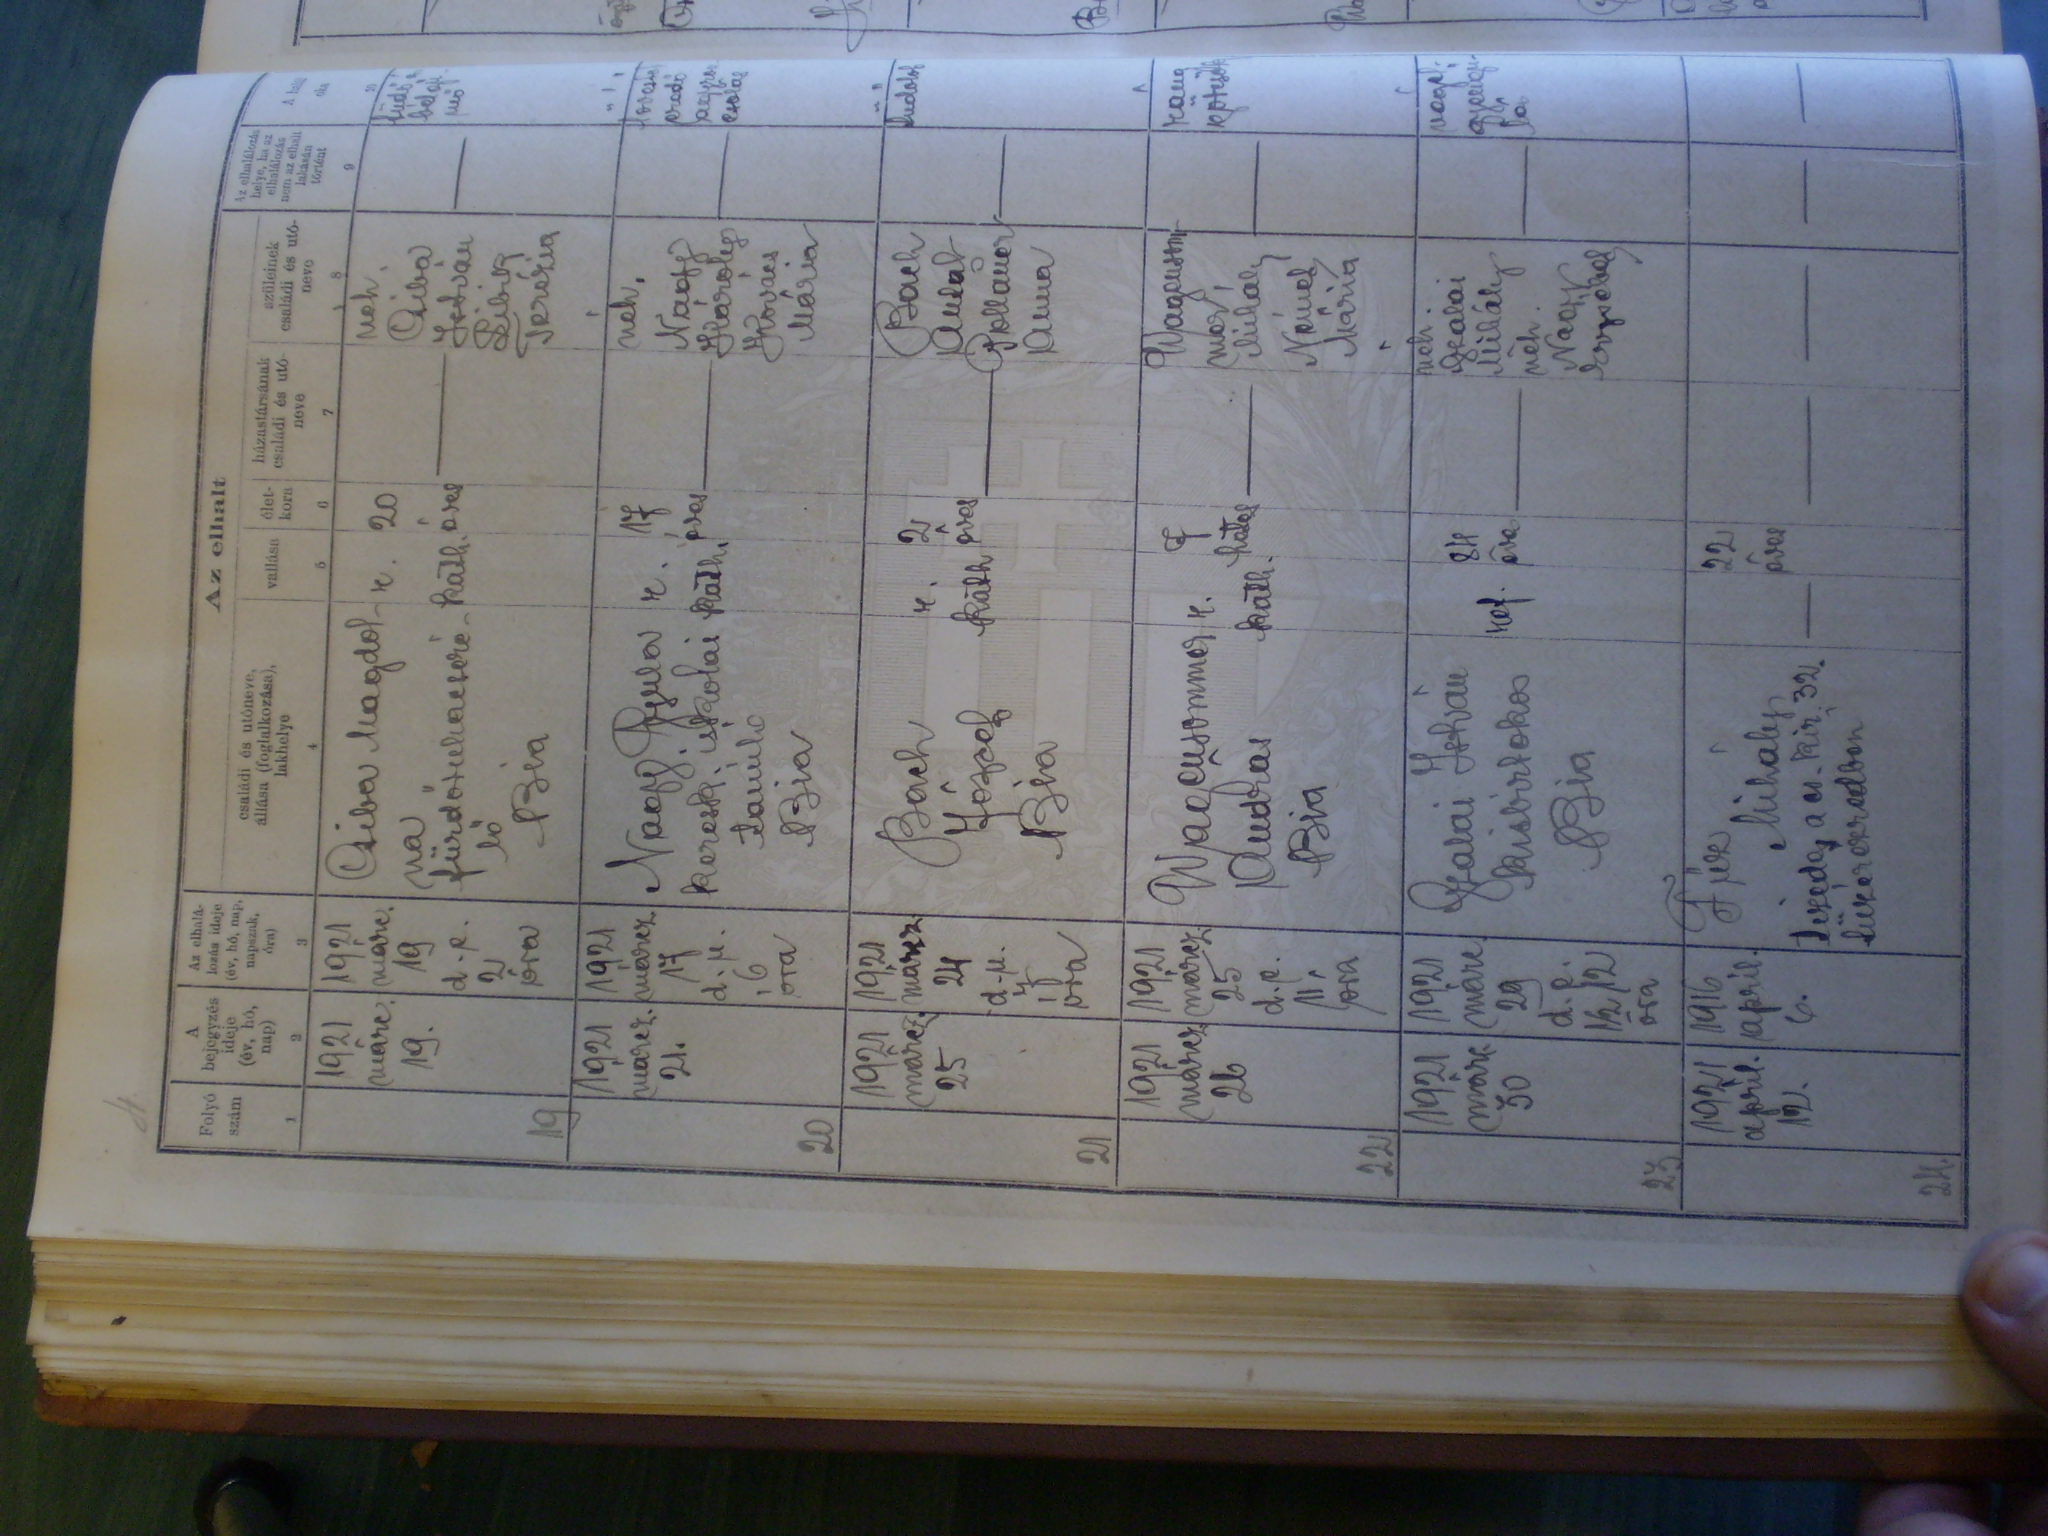 Az elhalt
Folyó
szám
A
bejegyzés
ideje
(év, hó,
nap)
Az elhalá-
lozás ideje
(év, hó, nap,
napszak,
óra)
családi és utóneve,
állása (foglalkozása),
lakhelye
vallása
élet-
kora
házastársának
családi és utó-
neve
szüleinek
családi és utó-
neve
Az elhalálozás
helye, ha az
elhalálozás
nem az elhalt
lakásán
történt
A halál
oka
1
2
3
4
5
6
7
8
9
10
19
1921
márc.
19.
1921
márc.
19
d. e.
2
óra
Csiba Magdol-
na
Bia
r.
kath.
20
éves
neh.
Csiba
István
Terézia
20
1921
márcz.
21.
1921
márcz.
17
d. u.
6
óra
Nagy Gyula
keresk. iskolai
tanuló
Bia
r.
kath.
17
éves
neh.
Nagy
Károly
Kovács
Mária
21
1921
márcz.
25
1921
márcz.
24
d. u.
óra
Bach
József
Bia
r.
kath
2
éves
Bach
Antal
Anna
22
1921
márcz
26
1921
márcz.
25
d. e.
11
óra
Wagensommer
András
Bia
r.
kath.
7
hetes
Wagensom-
mer
Mihály
Német
Mária
23
1921
márc.
30
1921
márc.
29
d. e.
1/2 12
óra
Szalai István
kisbirtokos
Bia
ref.
84
éves
neh.
Szalai
Mihály
néh.
Nagy
24.
1921
ápril.
12.
1916
ápril.
6.
Mihály
a cs. kir. 32.
22
éves